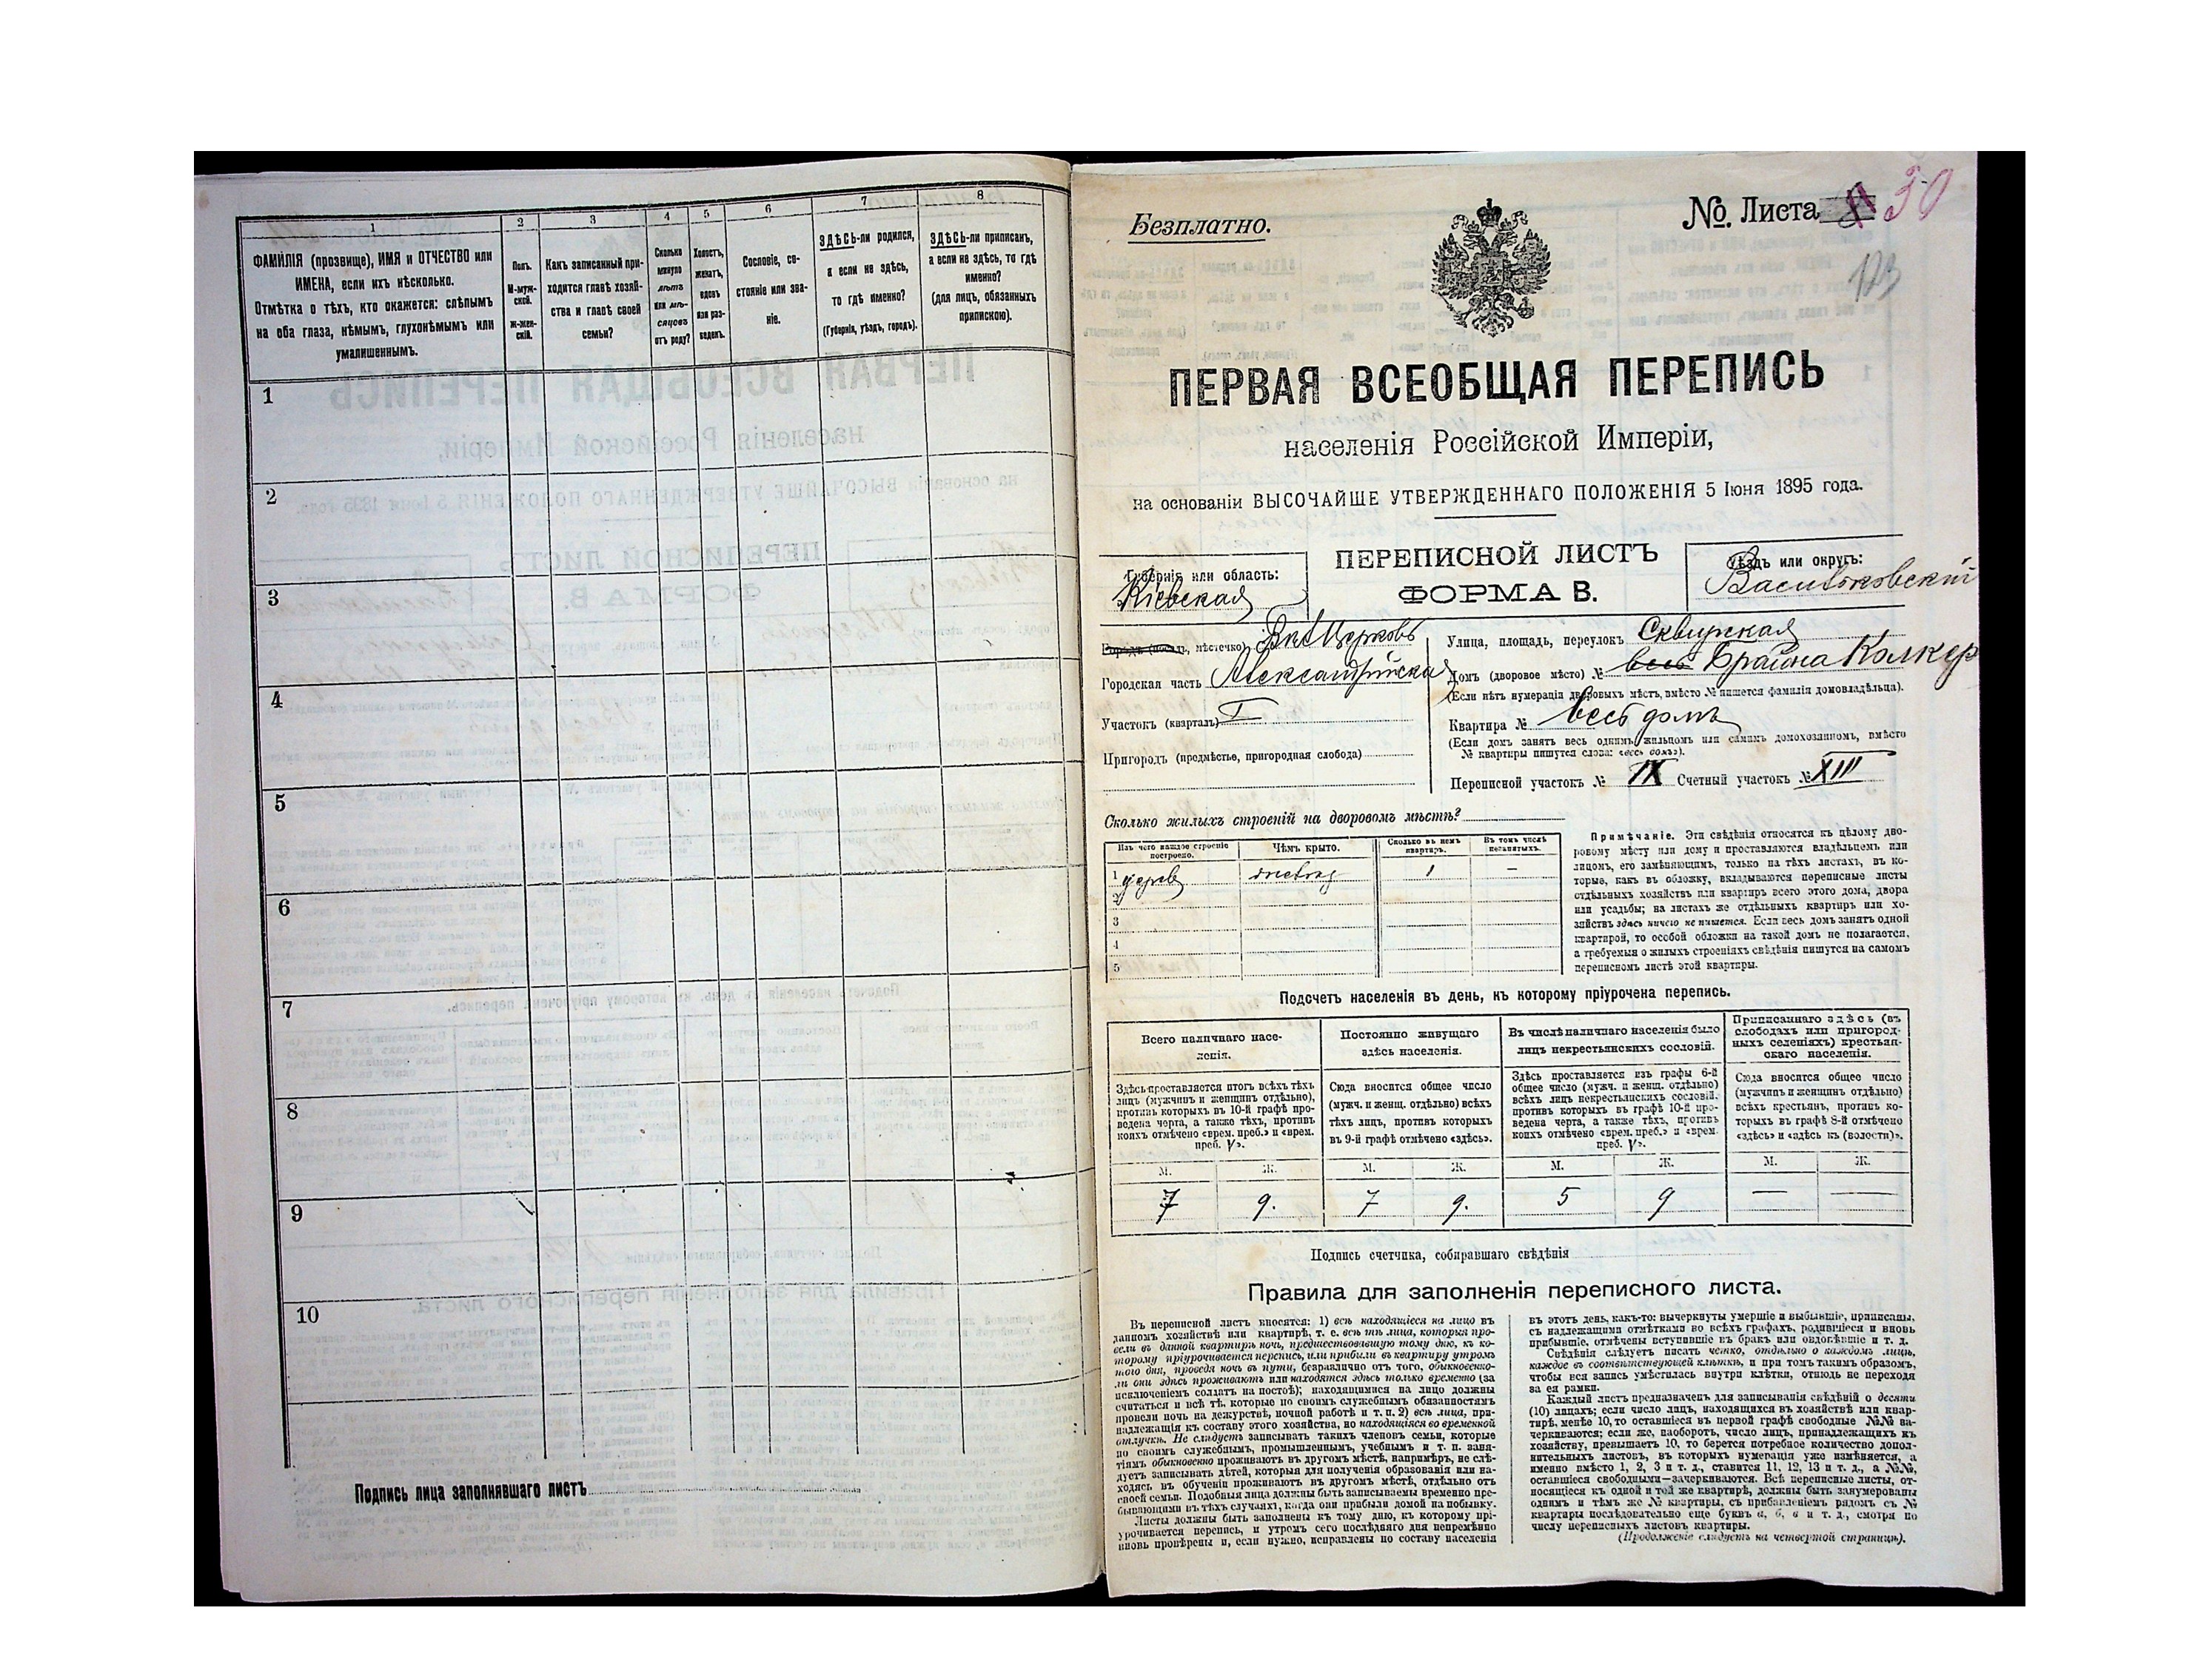 1
2
3
4
5
6
7
8
ФАМИЛІЯ (прозвище), ИМЯ и ОТЧЕСТВО или
ИМЕНА, если ихъ нѣсколько.
Отмѣтка о тѣхъ, кто окажется: слѣпымъ
на оба глаза, нѣмымъ, глухонѣмымъ или
умалишеннымъ.
Полъ.
М-муж-
ской.
Ж-жен-
скій.
Какъ записанный при-
ходится главѣ хозяй-
ства и главѣ своей
семьи?
Сколько
минуло
лѣтъ
или мѣ-
сяцовъ
отъ роду?
Холостъ,
женатъ,
вдовъ
или раз-
веденъ.
Сословіе, со-
стояніе или зва-
ніе.
ЗДѢСЬ-ли родился,
а если не здѣсь,
то гдѣ именно?
(Губернія, уѣздъ, городъ).
ЗДѢСЬ-ли приписанъ,
а если не здѣсь, то гдѣ
именно?
(для лицъ, обязанныхъ
припискою).
1
2
3
4
5
6
7
8
9
10
Подпись лица заполнявшаго листъ
Безплатно.
№. Листа 30
123
ПЕРВАЯ ВСЕОБЩАЯ ПЕРЕПИСЬ
населенія Россійской Имперіи,
на основаніи ВЫСОЧАЙШЕ УТВЕРЖДЕННАГО ПОЛОЖЕНІЯ 5 Іюня 1895 года.
Губернія или область:
Кіевская
ПЕРЕПИСНОЙ ЛИСТЪ
ФОРМА В.
Уѣздъ или округъ:
Васильковскій
Городъ (посадъ, мѣстечко) Бѣл Церковь
Городская часть Александрійская
Участокъ (кварталъ) I
Пригородъ (предмѣстье, пригородная слобода)
Улица, площадь, переулокъ Сквирская
Домъ (дворовое мѣсто) № весь Брайна Колкер
(Если нѣтъ нумераціи дворовыхъ мѣстъ, вмѣсто № пишется фамилія домовладѣльца).
Квартира № весь домъ
(Если домъ занятъ весь однимъ жильцомъ или самимъ домохозяиномъ, вмѣсто
№ квартиры пишутся слова: «весь домъ»).
Переписной участокъ № IX Счетный участокъ № XIII
Сколько жилыхъ строеній на дворовомъ мѣстѣ?
Изъ чего каждое строеніе
построено.
Чѣмъ крыто.
Сколько въ немъ
квартиръ.
Въ томъ числѣ
незанятыхъ.
1 дерев 1 —
2
3
4
5
Примѣчаніе. Эти свѣдѣнія относятся къ цѣлому дво-
ровому мѣсту или дому и проставляются владѣльцемъ или
лицомъ, его замѣняющимъ, только на тѣхъ листахъ, въ ко-
торые, какъ въ обложку, вкладываются переписные листы
отдѣльныхъ хозяйствъ или квартиръ всего этого дома, двора
или усадьбы; на листахъ же отдѣльныхъ квартиръ или хо-
зяйствъ здѣсь ничего не пишется. Если весь домъ занятъ одной
квартирой, то особой обложки на такой домъ не полагается,
а требуемыя о жилыхъ строеніяхъ свѣдѣнія пишутся на самомъ
переписномъ листѣ этой квартиры.
Подсчетъ населенія въ день, къ которому пріурочена перепись.
Всего наличнаго насе-
ленія.
Постоянно живущаго
здѣсь населенія.
Въ числѣ наличнаго населенія было
лицъ некрестьянскихъ сословій.
Приписаннаго здѣсь (въ
слободахъ или пригород-
ныхъ селеніяхъ) крестьян-
скаго населенія.
Здѣсь проставляется итогъ всѣхъ тѣхъ
лицъ (мужчинъ и женщинъ отдѣльно),
противъ которыхъ въ 10-й графѣ про-
ведена черта, а также тѣхъ, противъ
коихъ отмѣчено «врем. преб.» и «врем.
преб. V».
Сюда вносится общее число
(мужч. и женщ. отдѣльно) всѣхъ
тѣхъ лицъ, противъ которыхъ
въ 9-й графѣ отмѣчено «здѣсь».
Здѣсь проставляется изъ графы 6-й
общее число (мужч. и женщ. отдѣльно)
всѣхъ лицъ некрестьянскихъ сословій,
противъ которыхъ въ графѣ 10-й про-
ведена черта, а также тѣхъ, противъ
коихъ отмѣчено «врем. преб.» и «врем.
преб. V».
Сюда вносится общее число
(мужчинъ и женщинъ отдѣльно)
всѣхъ крестьянъ, противъ ко-
торыхъ въ графѣ 8-й отмѣчено
«здѣсь» и «здѣсь къ (волости)».
М. Ж. М. Ж. М. Ж. М. Ж.
7 9. 7 9. 5 9 — —
Подпись счетчика, собиравшаго свѣдѣнія
Правила для заполненія переписного листа.
Въ переписной листъ вносятся: 1) всѣ находящіеся на лицо въ
данномъ хозяйствѣ или квартирѣ, т. е. всѣ тѣ лица, которыя про-
вели въ данной квартирѣ ночь, предшествовавшую тому дню, къ ко-
торому пріурочивается перепись, или прибыли въ квартиру утромъ
того дня, проведя ночь въ пути, безразлично отъ того, обыкновенно-
ли они здѣсь проживаютъ или находятся здѣсь только временно (за
исключеніемъ солдатъ на постоѣ); находящимися на лицо должны
считаться и всѣ тѣ, которые по своимъ служебнымъ обязанностямъ
провели ночь на дежурствѣ, ночной работѣ и т. п. 2) всѣ лица, при-
надлежащія къ составу этого хозяйства, но находящіяся во временной
отлучкѣ. Не слѣдуетъ записывать такихъ членовъ семьи, которые
по своимъ служебнымъ, промышленнымъ, учебнымъ и т. п. заня-
тіямъ обыкновенно проживаютъ въ другомъ мѣстѣ, напримѣръ, не слѣ-
дуетъ записывать дѣтей, которыя для полученія образованія или на-
ходясь въ обученіи проживаютъ въ другомъ мѣстѣ, отдѣльно отъ
своей семьи. Подобныя лица должны быть записываемы временно пре-
бывающими въ тѣхъ случаяхъ, когда они прибыли домой на побывку.
Листы должны быть заполнены къ тому дню, къ которому прі-
урочивается перепись, и утромъ сего послѣдняго дня непремѣнно
вновь провѣрены и, если нужно, исправлены по составу населенія
въ этотъ день, какъ-то: вычеркнуты умершіе и выбывшіе, приписаны,
съ надлежащими отмѣтками во всѣхъ графахъ, родившіеся и вновь
прибывшіе, отмѣчены вступившіе въ бракъ или овдовѣвшіе и т. д.
Свѣдѣнія слѣдуетъ писать четко, отдѣльно о каждомъ лицѣ,
каждое въ соотвѣтствующей клѣткѣ, и при томъ такимъ образомъ,
чтобы вся запись умѣстилась внутри клѣтки, отнюдь не переходя
за ея рамки.
Каждый листъ предназначенъ для записыванія свѣдѣній о десяти
(10) лицахъ; если число лицъ, находящихся въ хозяйствѣ или квар-
тирѣ, менѣе 10, то оставшіеся въ первой графѣ свободные №№ за-
черкиваются; если же, наоборотъ, число лицъ, принадлежащихъ къ
хозяйству, превышаетъ 10, то берется потребное количество допол-
нительныхъ листовъ, въ которыхъ нумерація уже измѣняется, а
именно вмѣсто 1, 2, 3 и т. д., ставится 11, 12, 13 и т. д., а №№,
оставшіеся свободными—зачеркиваются. Всѣ переписные листы, от-
носящіеся къ одной и той же квартирѣ, должны быть занумерованы
однимъ и тѣмъ же № квартиры, съ прибавленіемъ рядомъ съ №
квартиры послѣдовательно еще буквъ а, б, в и т. д., смотря по
числу переписныхъ листовъ квартиры.
(Продолженіе слѣдуетъ на четвертой страницѣ).